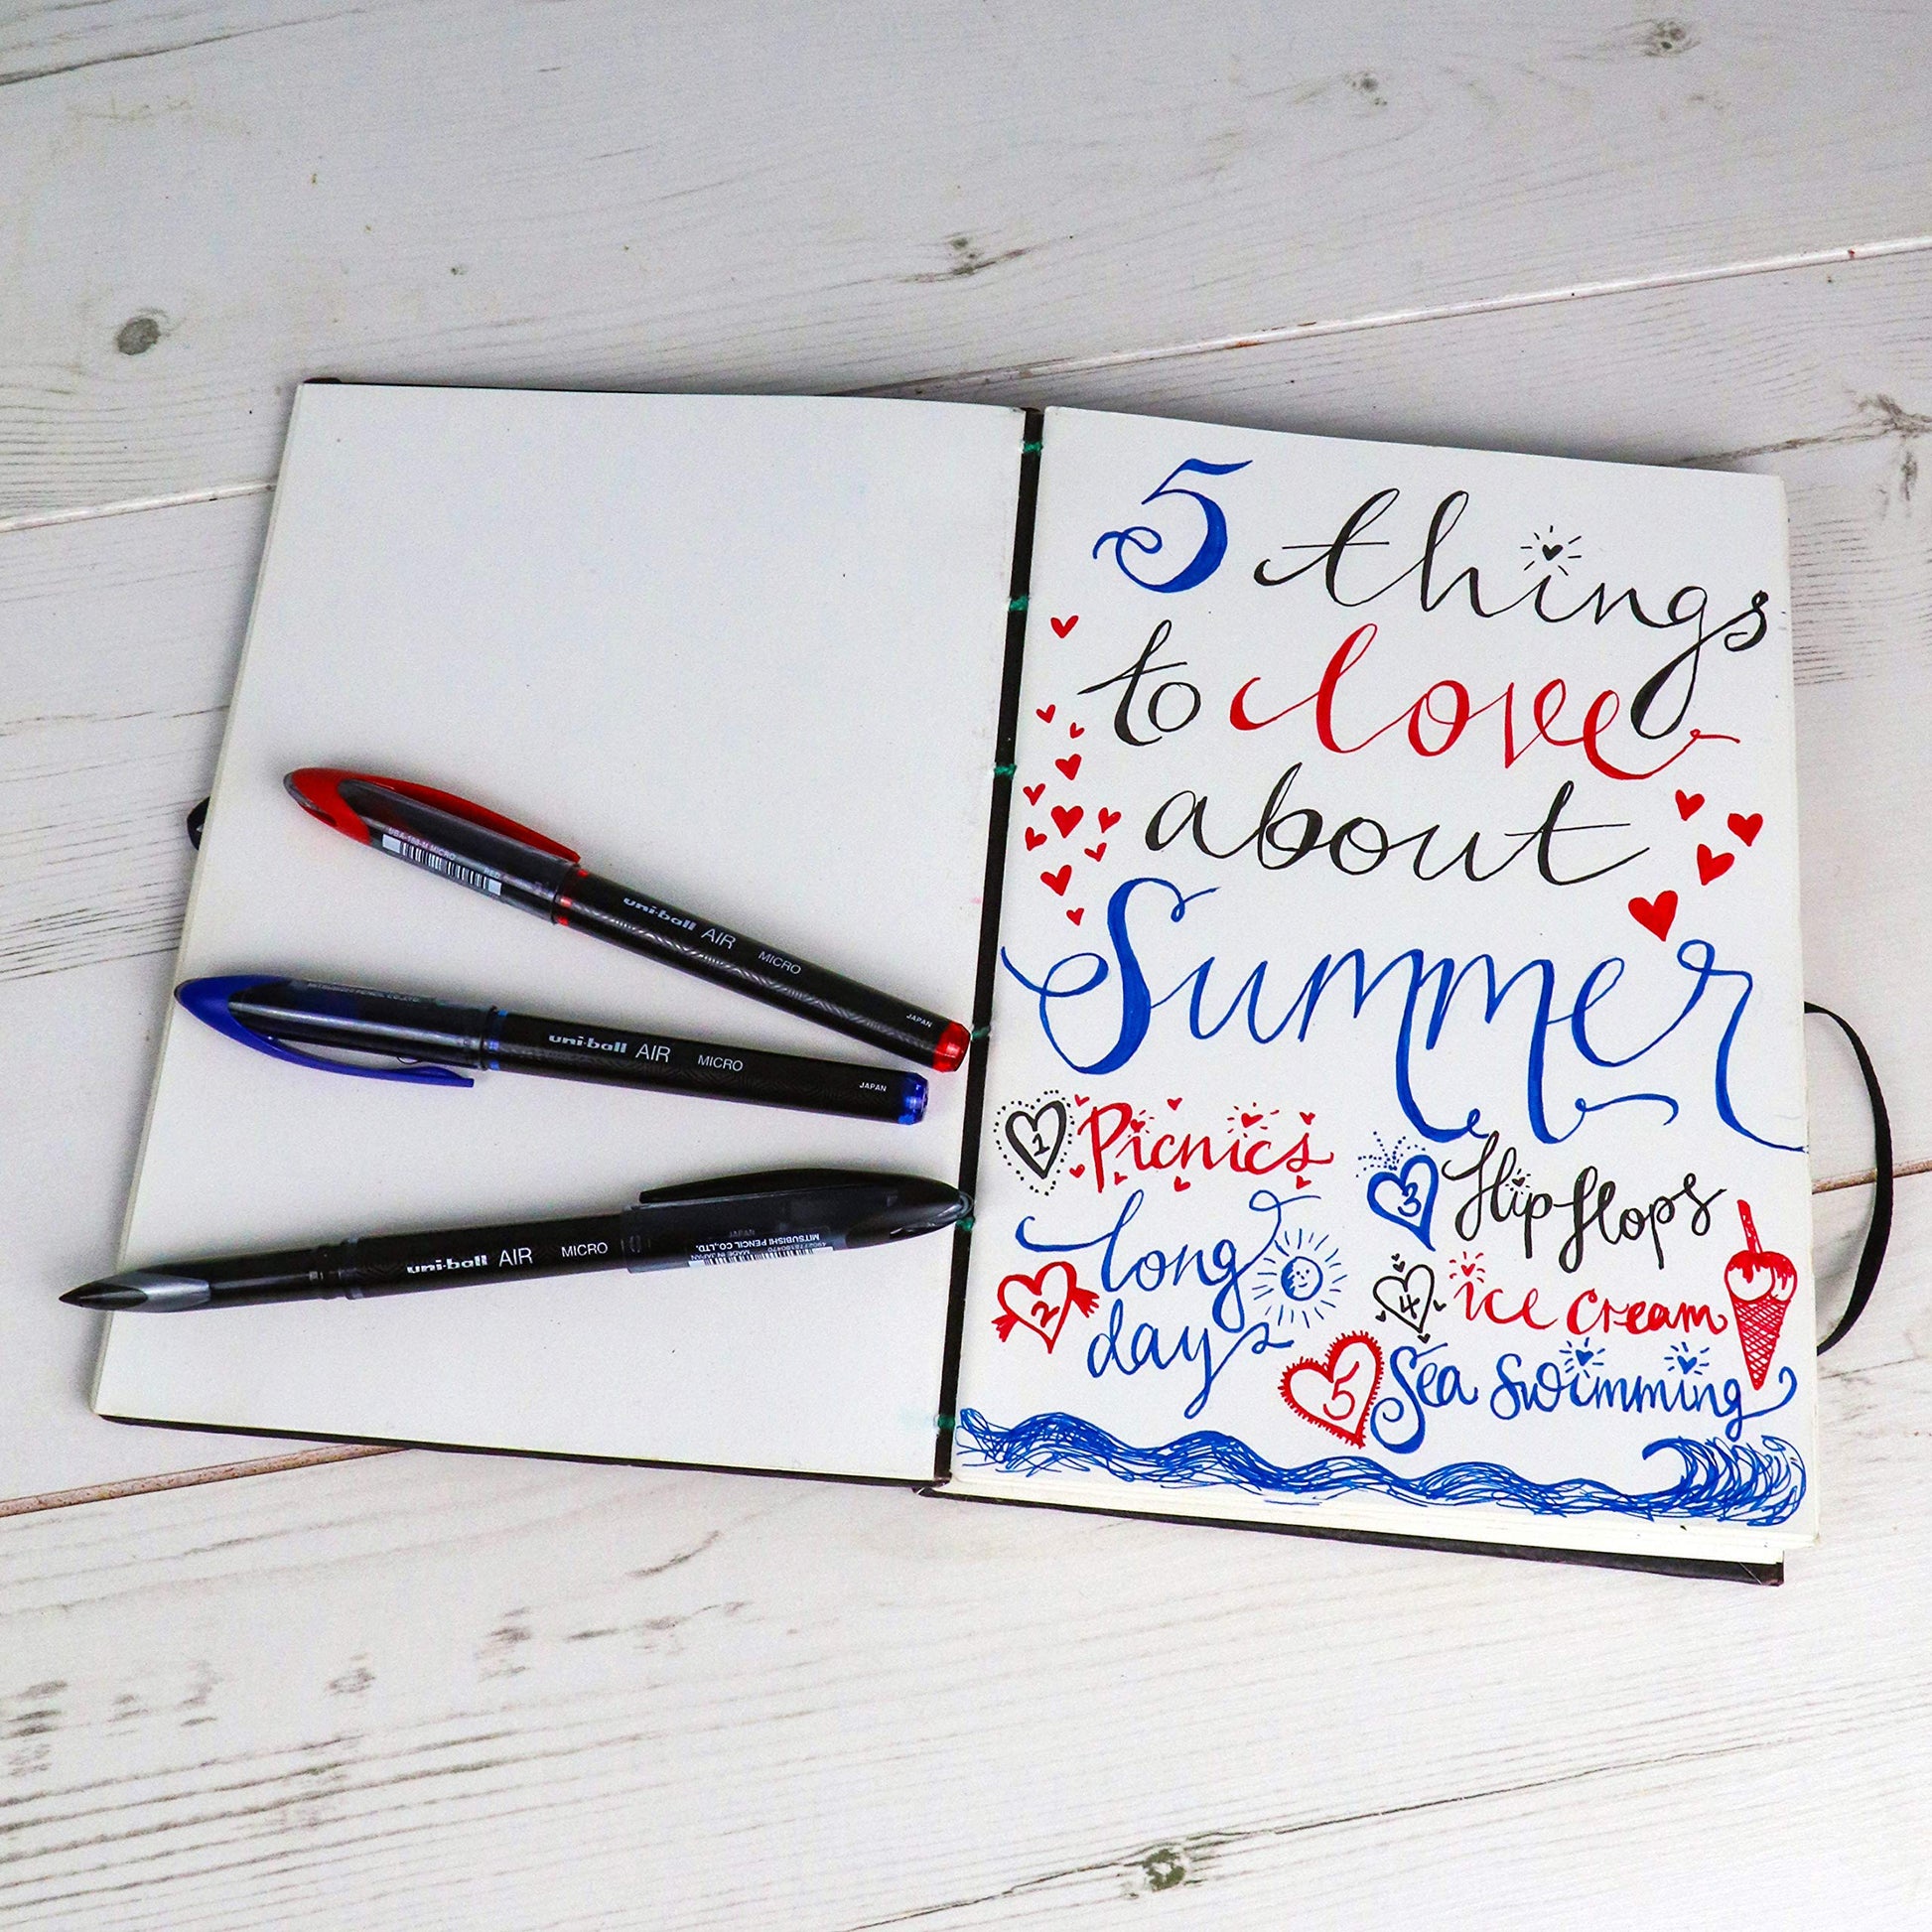 5 things
to love
about
Summer
1 Picnics
2 long
days
3 Flip flops
4 ice cream
5 Sea Swimming
UBA-188-M MICRO
RED
uni-ball AIR MICRO
JAPAN
MITSUBISHI PENCIL CO.,LTD.
uni-ball AIR MICRO
JAPAN
uni-ball AIR MICRO
MITSUBISHI PENCIL CO.,LTD.
MADE IN JAPAN
JAPAN